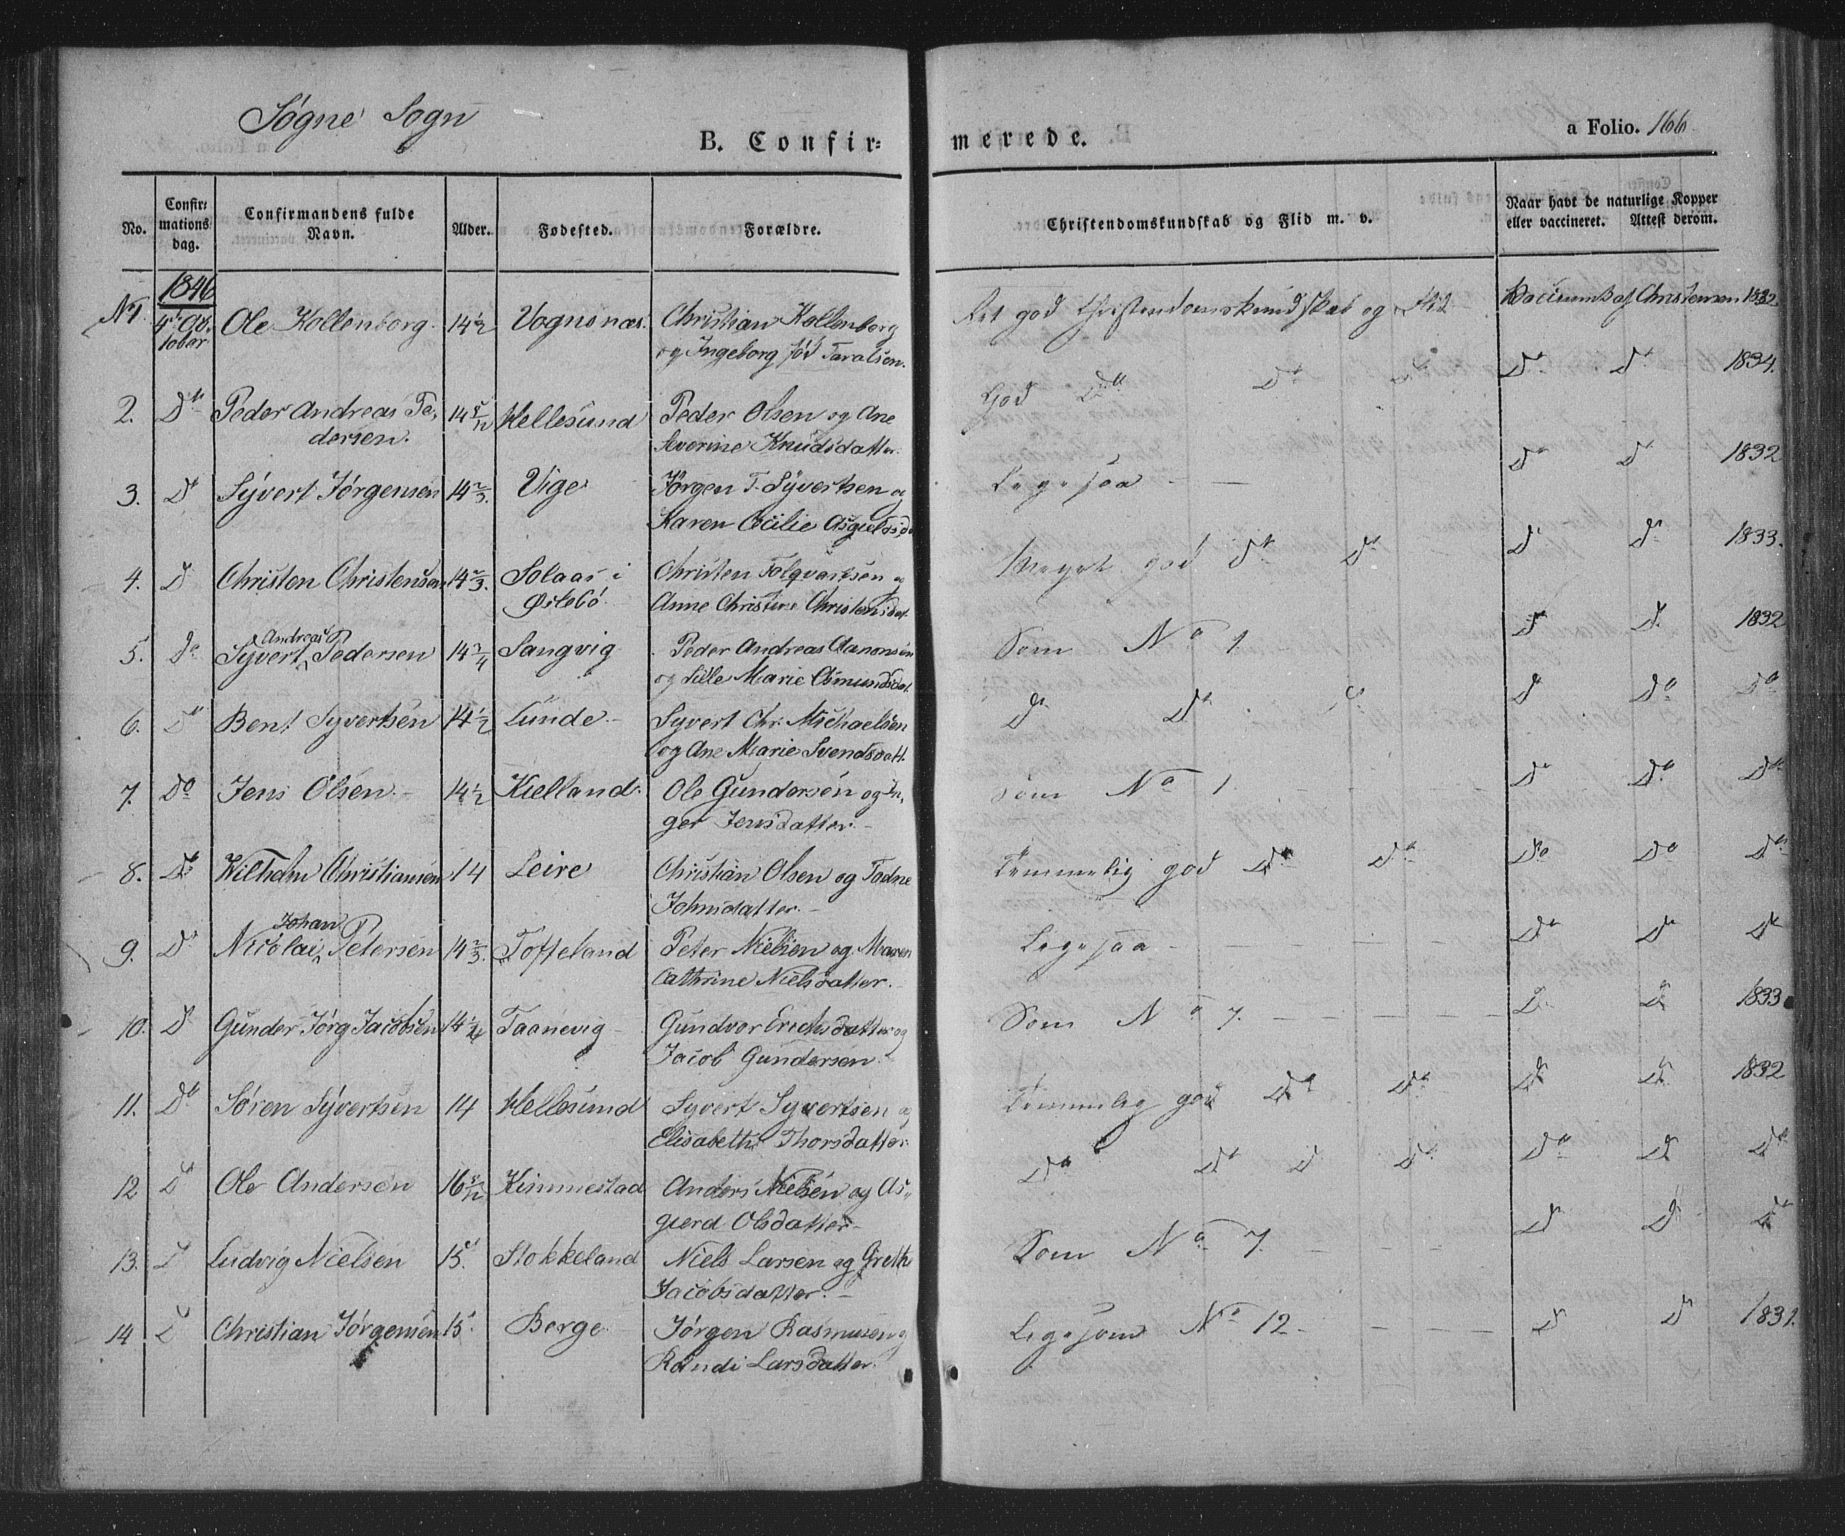 Søgne Sogn
B. Confir= merede.
a Folio. 166
No. Confir= mations dag. Confirmandens fulde Navn. Alder. Fødested. Forældre. Christendomskundskab og Flid m. v. Naar havt de naturlige Kopper eller vaccineret. Attest derom.
1846
N 1. 4de Oc- tober Ole Kollenborg 14 1/2 Vognsnæs. Christian Kollenborg Ret god Christendomskundskab og Flid af Christensen 1832.
og Ingeborg fød Taralsen.
2. Do Peder Andreas Pe- 14 5/12 Hellesund Peder Olsen og Ane God Do Do Do Do Do 1834.
dersen. Severine Knudsdatter.
3. Do Syvert Jørgensen 14 2/3. Vige Jørgen T. Syvertsen og Ligesaa Do Do 1832
Karen Cecilie
4. D Christen Christensen 14 2/3. Solaas i Christen Folqvartsen og Meget god Do Do Do Do 1833.
Østebø. Anne Christine Christensdat.
5. Do Syvert Andreas Pedersen 14 3/4 Sangvig Peder Andreas Aanonsen Som No 1 Do D. 1832
og Lille Marie Asmundsdat.
6. Do Bent Syvertsen 14 1/2 Lunde Syvert Chr. Michaelsen Do Do Do Do Do Do
og Ane Marie Svendsdatt.
7. Do Jens Olsen 14 1/2 Kielland. Ole Gundersen og In- Som No 1 Do Do Do
ger Jensdatter.
8. Do Wilhelm Christiansen 14 Leire Christian Olsen og Tadne Temmelig god Do Do Do Do Do
Johnsdatter.
9. Do Nicolai Johan Petersen 14 2/3. Tofteland Peter Nielsen og Maren Ligesaa Do Do Do
Cathrine Nielsdatter.
10. D Gunder Jørg Jacobsen 14 Taanevig Gundvor Erichsdatter og Som No 7. D. Do 1833
Jacob Gundersen.
11. Do Søren Syvertsen 14 Hellesund Syvert Syvertsen og Temmelig god Do Do Do Do 1832
Elisabeth Thorsdatter.
12 Do Ole Andersen 16 5/12 Kimmestad Anders Nielsen og As- Do Do D Do Do D Do
gierd Olsdatter
13. D Ludvig Nielsen 15. Stokkeland Niels Larsen og Grethe Som No 7. D D Do
Jacobsdatter.
14 D Christian Jørgensen 15 Berge Jørgen Rasmusen og Ligesom No 12 D D 1831.
Randi Larsdatter.